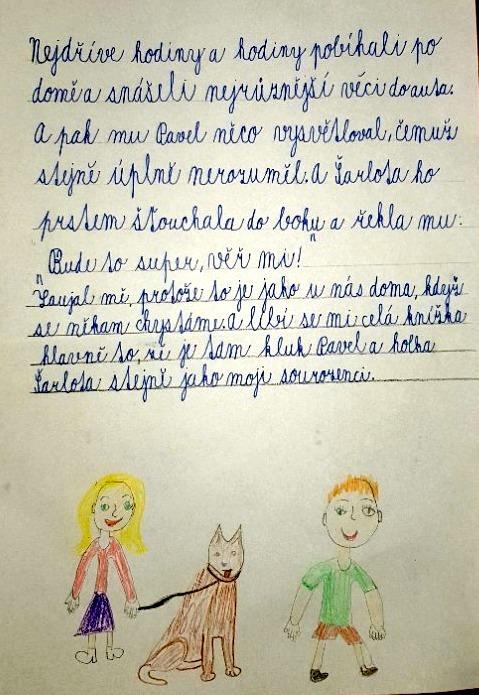 Nejdříve hodiny a hodiny pobíhali po
domě a snášeli nejrůznější věci do auta.
A pak mu Pavel něco vysvětloval, čemuž
stejně úplně nerozuměl. A Šarlota ho
prstem šťouchala do boku a řekla mu:
„Bude to super, věř mi!"
Zaujal mě, protože to je jako u nás doma, když
se někam chystáme. A líbí se mi celá knížka
hlavně to, že je tam kluk Pavel a holka
Šarlota stejně jako moji sourozenci.